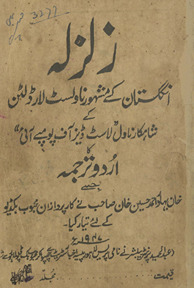 زلزلہ
انگلستان کے مشہور ناولسٹ لارڈ لٹن
کے
شاہکار ناول "لاسٹ ڈیز آف پومپے آئی"
کا
اردو ترجمہ
جسے
خان بہادر احمد حسین خان صاحب نے کارپردازان محبوب بکڈپو
کے لئے تیار کیا۔
۱۹۴۷ء
قیمت
مجلد